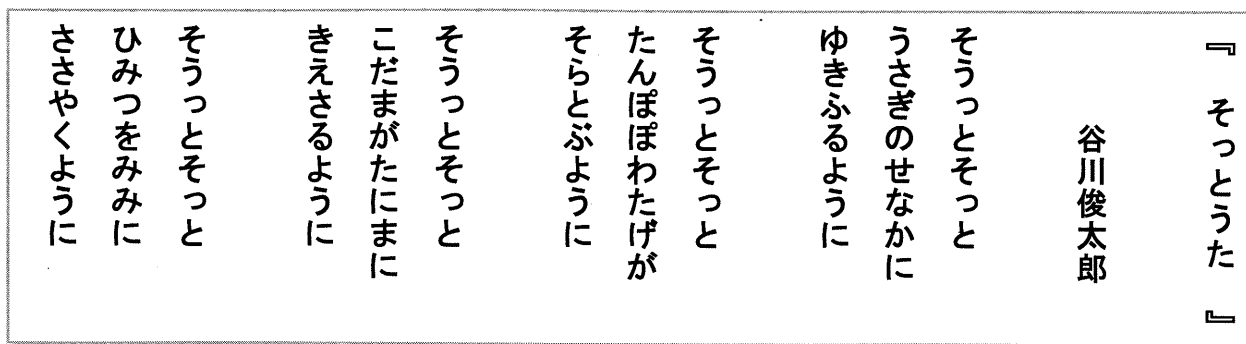 『 そっとうた 』
谷川俊太郎
そうっとそっと
うさぎのせなかに
ゆきふるように
そうっとそっと
たんぽぽわたげが
そらとぶように
そうっとそっと
こだまがたにまに
きえさるように
そうっとそっと
ひみつをみみに
ささやくように